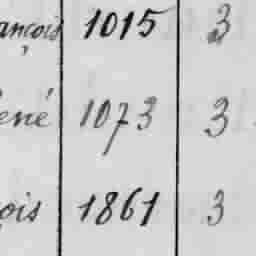 ançois 1015 3
ené 1073 3
çois 1861 3